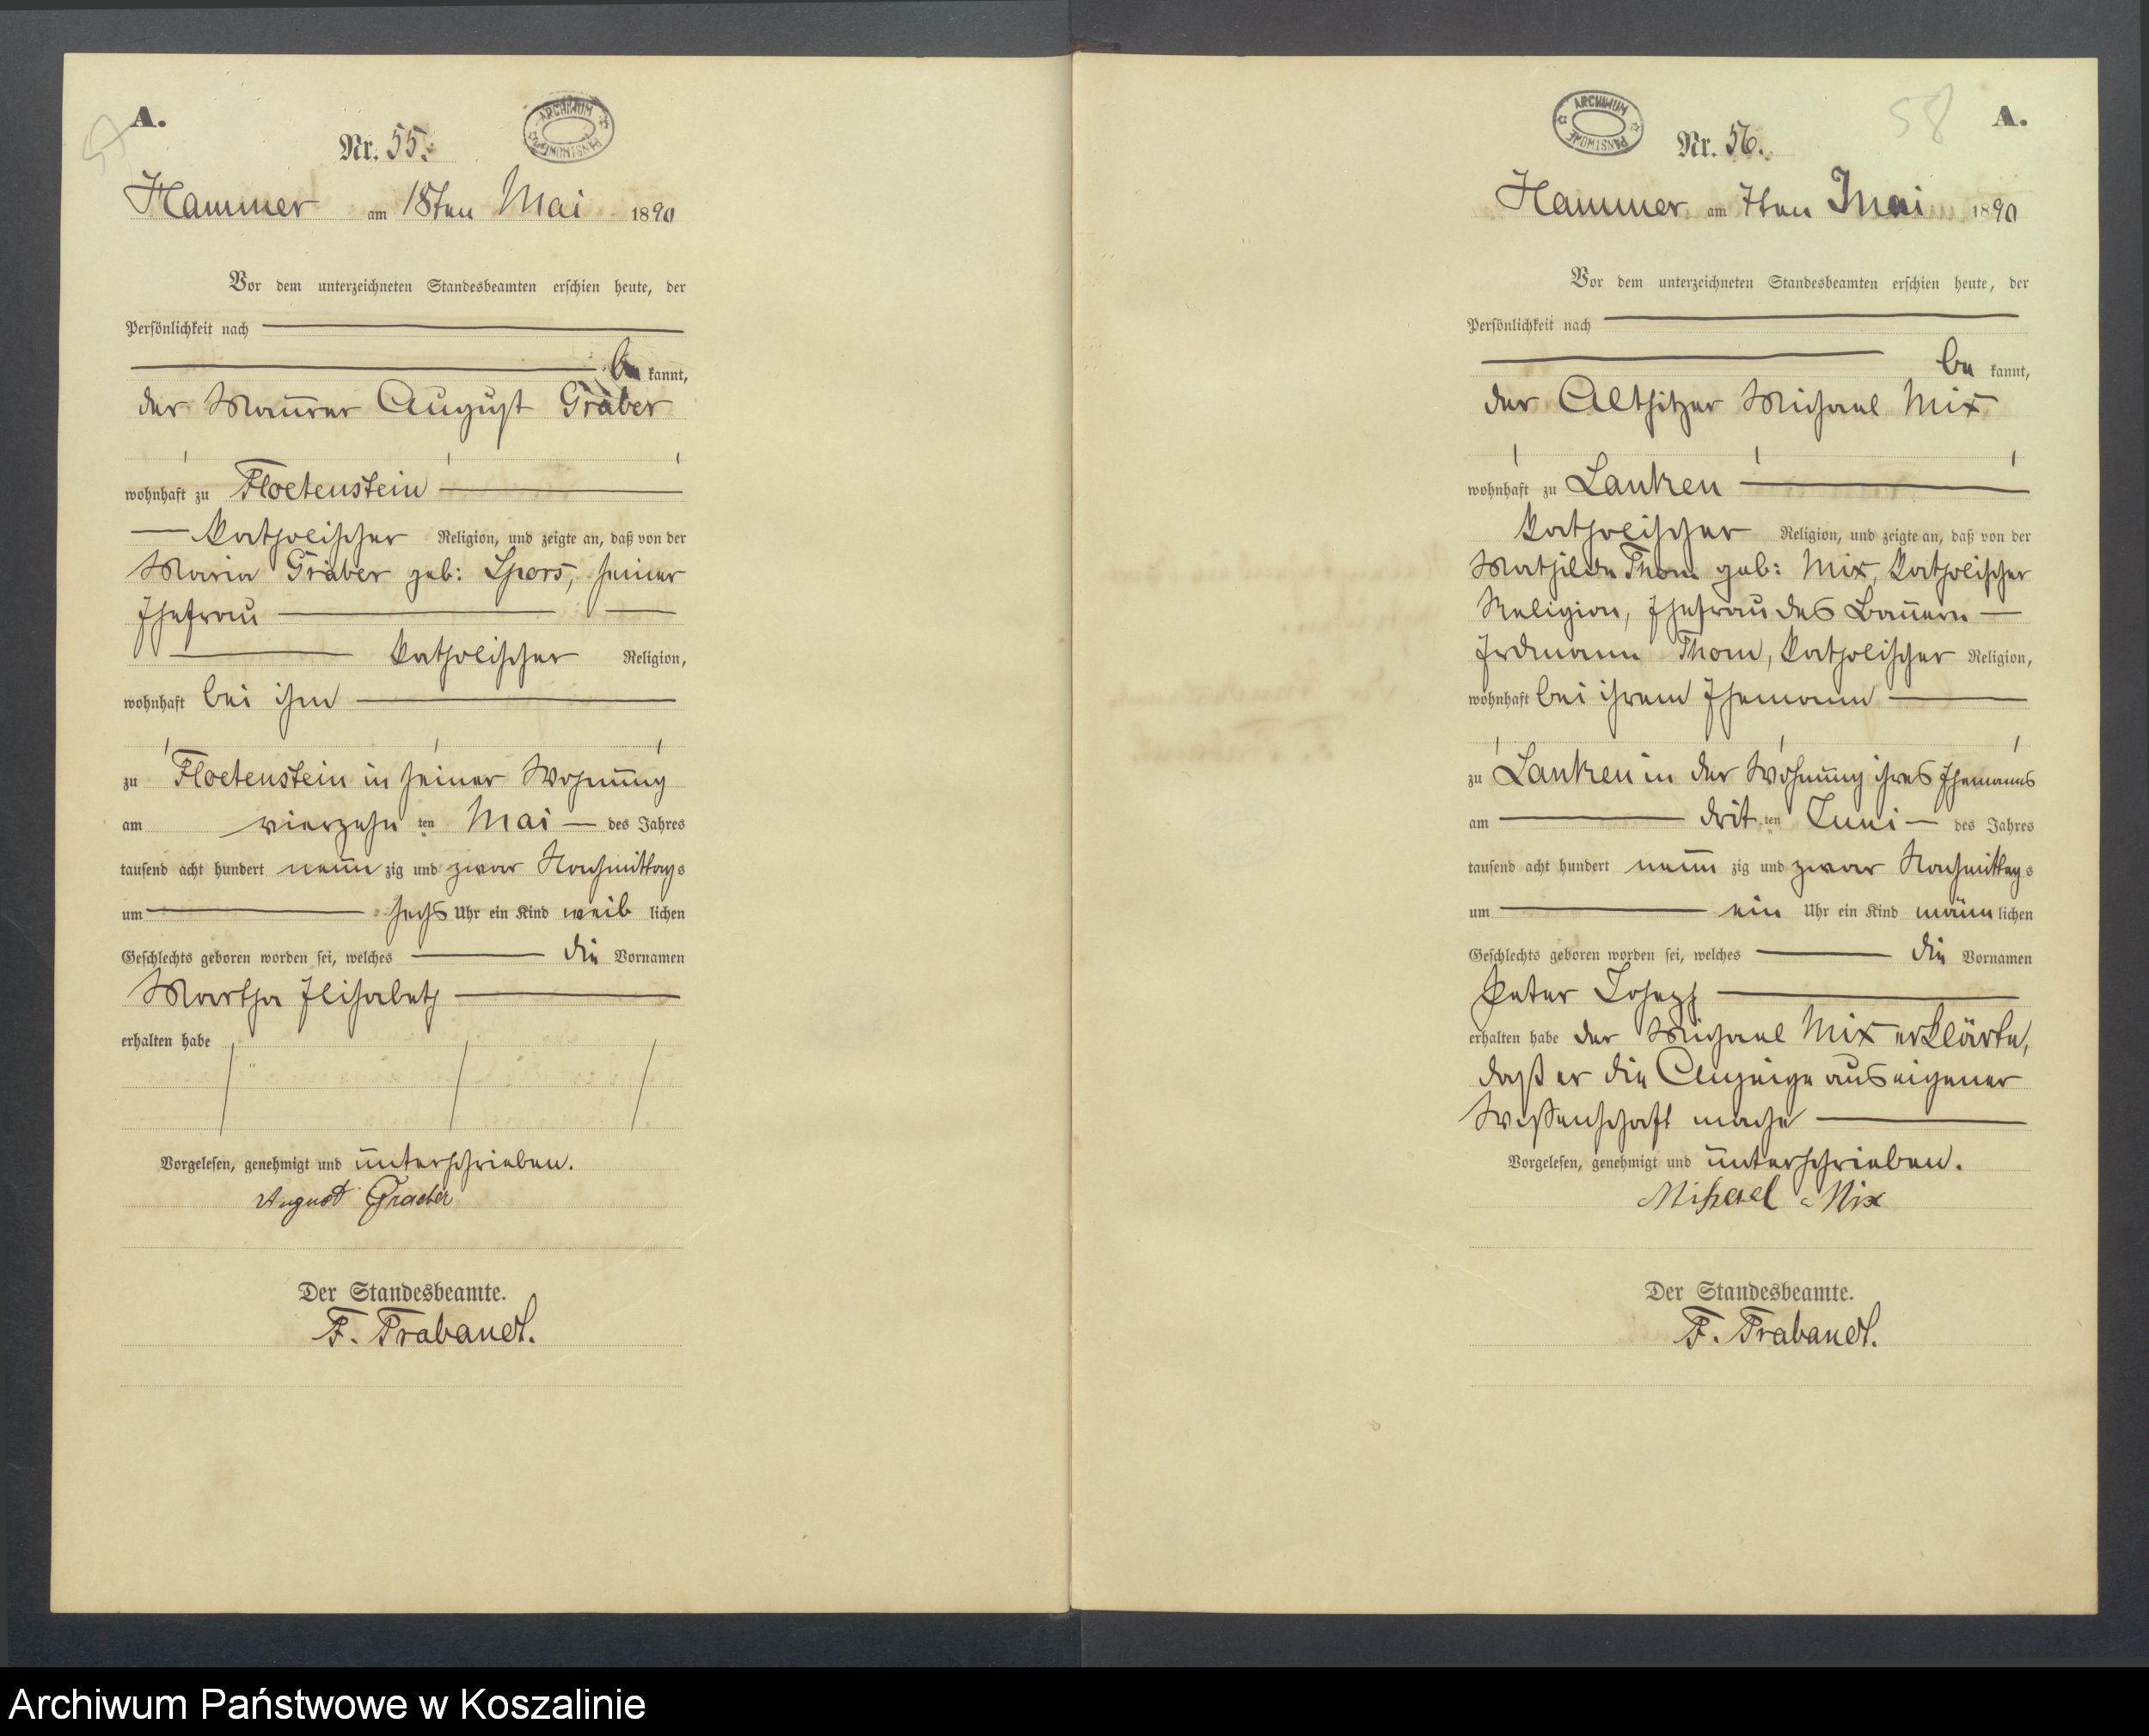 57
A.
ARCHIWUM PAŃSTWOWE
Nr. 55.
Hammer am 18ten Mai 1890
Vor dem unterzeichneten Standesbeamten erschien heute, der
Persönlichkeit nach
be kannt,
der Maurer August Gräber
wohnhaft zu Floetenstein
katholischer Religion, und zeigte an, daß von der
Maria Gräber geb: Spors, seiner
Ehefrau
katholischer Religion,
wohnhaft bei ihm
zu Floetenstein in seiner Wohnung
am vierzehn ten Mai des Jahres
tausend acht hundert neun zig und zwar Nachmittags
um sechs Uhr ein Kind weib lichen
Geschlechts geboren worden sei, welches die Vornamen
Martha Elisabeth
erhalten habe
Vorgelesen, genehmigt und unterschrieben.
August Graeber
Der Standesbeamte.
F. Trabandt.
58
A.
ARCHIWUM PAŃSTWOWE
Nr. 56.
Hammer am 7ten Mai 1890
Vor dem unterzeichneten Standesbeamten erschien heute, der
Persönlichkeit nach
be kannt,
der Altsitzer Michael Mix
wohnhaft zu Lanken
katholischer Religion, und zeigte an, daß von der
Mathilde Thom geb: Mix, katholischer
Religion, Ehefrau des Bauern
Erdmann Thom, katholischer Religion,
wohnhaft bei ihrem Ehemann
zu Lanken in der Wohnung ihres Ehemanns
am drit ten Juni des Jahres
tausend acht hundert neun zig und zwar Nachmittags
um ein Uhr ein Kind männ lichen
Geschlechts geboren worden sei, welches die Vornamen
Peter Joseph
erhalten habe der Michael Mix erklärte,
daß er die Anzeige aus eigener
Wissenschaft mache
Vorgelesen, genehmigt und unterschrieben.
Michael Mix
Der Standesbeamte.
F. Trabandt.
Archiwum Państwowe w Koszalinie